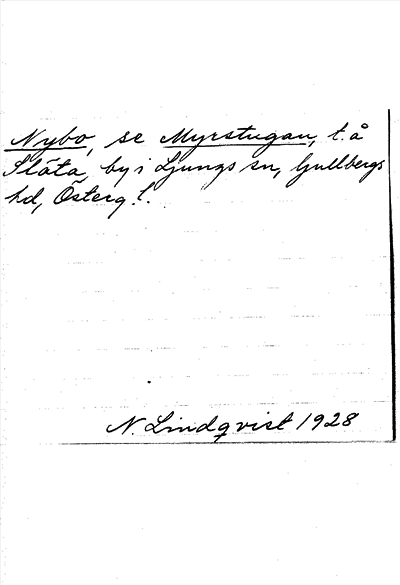 Nybo, se Myrstugan, t. å
Släta, by i Ljungs sn, Gullbergs
hd, Österg. l.
N. Lindqvist 1928